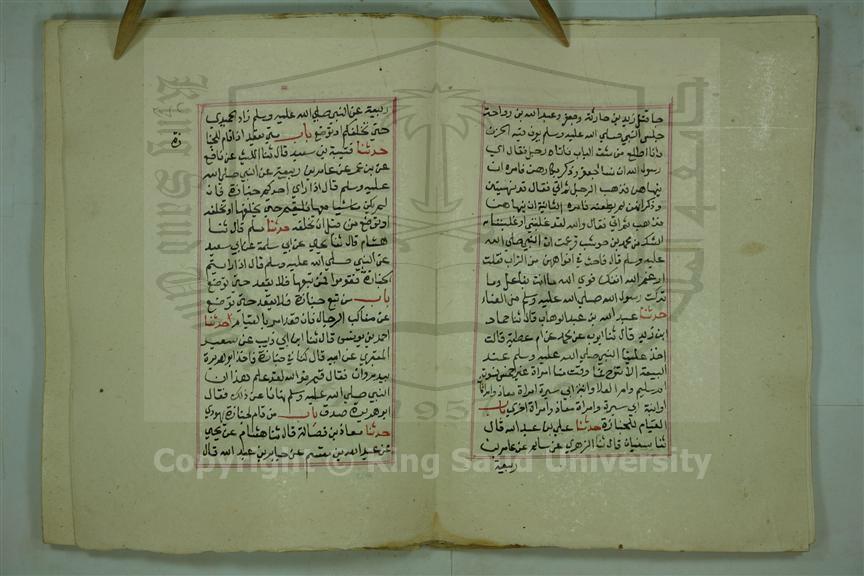 جاء قتل زيد بن حارثة وجعفر وعبد الله بن رواحة
جلس النبي صلى الله عليه وسلم يعرف فيه الحزن
وانا اطلع من شق الباب فاتاه رجل فقال اي
رسول الله ان نساء جعفر وذكر بكاءهن فامره ان
ينهاهن فذهب الرجل ثم اتى فقال قد نهيتهن
وذكر انهن لم يطعنه فامره الثانية ان ينهاهن
فذهب ثم اتى فقال والله لقد غلبنني او غلبننا
الشك من محمد بن حوشب فزعمت ان النبي صلى الله
عليه وسلم قال فاحث في افواههن من التراب فقلت
ارغم الله انفك فوالله ما انت بفاعل وما
تركت رسول الله صلى الله عليه وسلم من العناء
حدثنا عبد الله بن عبد الوهاب قال ثنا حماد
بن زيد قال ثنا ايوب عن محمد عن ام عطية قالت
اخذ علينا النبي صلى الله عليه وسلم عند
البيعة الا ننوح فما وفت منا امراة غير خمس نسوة
ام سليم وام العلا وابنة ابي سبرة امراة معاذ وامراتان
او ابنة ابي سبرة وامراة معاذ وامراة اخرى باب
القيام للجنازة حدثنا علي بن عبد الله قال
ثنا سفيان قال ثنا الزهري عن سالم عن عامر بن
ربيعة
ربيعة عن النبي صلى الله عليه وسلم زاد الحميدي
حتى تخلفكم او توضع باب متى يقعد اذا قام للجنا
زة
حدثنا قتيبة بن سعيد قال ثنا الليث عن نافع
عن بن عمر عن عامر بن ربيعة عن النبي صلى الله
عليه وسلم قال اذا راى احدكم جنازة فان
لم يكن ماشيا معها فليقم حتى يخلفها او تخلفه
او توضع من قبل ان تخلفه حدثنا مسلم قال ثنا
هشام قال ثنا يحي عن ابي سلمة عن ابي سعيد
عن النبي صلى الله عليه وسلم قال اذا رايتم
الجنازة فقوموا فمن تبعها فلا يقعد حتى توضع
باب من تبع جنازة فلا يقعد حتى توضع
عن مناكب الرجال فان قعد امر بالقيام حدثنا
احمد بن يونس قال ثنا ابن ابي ذيب عن سعيد
المقبري عن ابيه قال كنا في جنازة فاخذ ابو هريرة
بيد مروان
فقال قم فوالله لقد علم هذا ان
النبي صلى الله عليه وسلم نهانا عن ذلك فقال
ابو هريرة صدق باب من قام لجنازة يهودي
حدثنا معاذ بن فضالة قال ثنا هشام عن يحي
عن عبيد الله بن مقسم عن جابر بن عبد الله قال
Copyright © King Saud University
King Saud University
1957